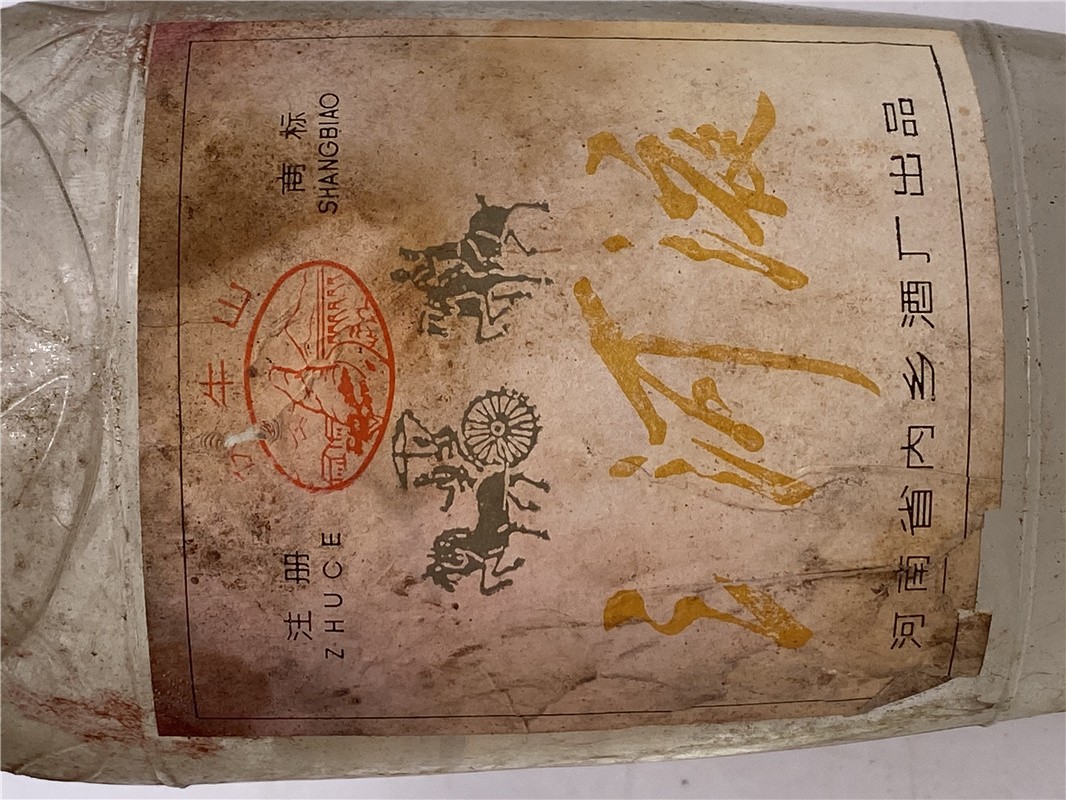 牛山
注册 商标
ZHUCE SHANGBIAO
河液
河南省内乡酒厂出品